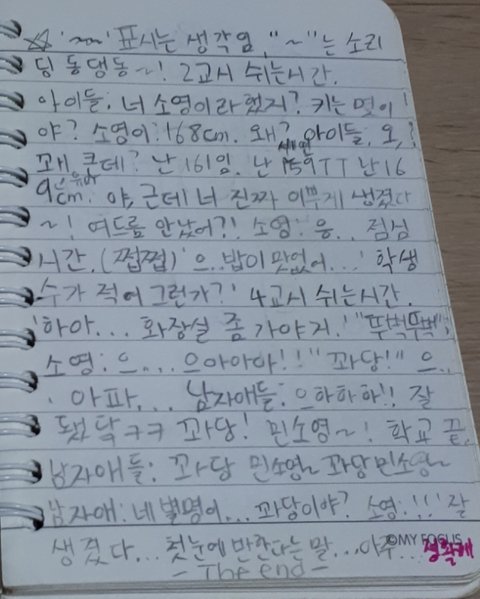 ☆ '~~' 표시는 생각임, "~"는 소리
딩동댕동~! 2교시 쉬는시간.
아이들: 너 소영이라 했지? 키는 몇이
야? 소영이: 168cm. 왜? 아이들: 오,
꽤 큰데? 난 161임. 난 159ㅠㅠ 난 16
9cm. 야, 근데 너 진짜 이쁘게 생겼다
~! 여드름 안났어?! 소영: 응.. 점심
시간. (쩝쩝) '으..밥이 맛없어...' 학생
수가 적어 그런가?' 4교시 쉬는시간.
'하아... 화장실 좀 가야지.' "뚜벅뚜벅"
소영: 으... 으아아아!! "꽈당!" 으..
. 아파... 남자애들: 으하하하!! 잘
됐닥ㅋㅋ 꽈당! 민소영~! 학교 끝.
남자애들: 꽈당 민소영~ 꽈당민소영~
남자애: 네 별명이... 꽈당이야? 소영: !!! 잘
생겼다... 첫눈에 반한다는 말...아주...정확해
- The end -
©MY FOCUS